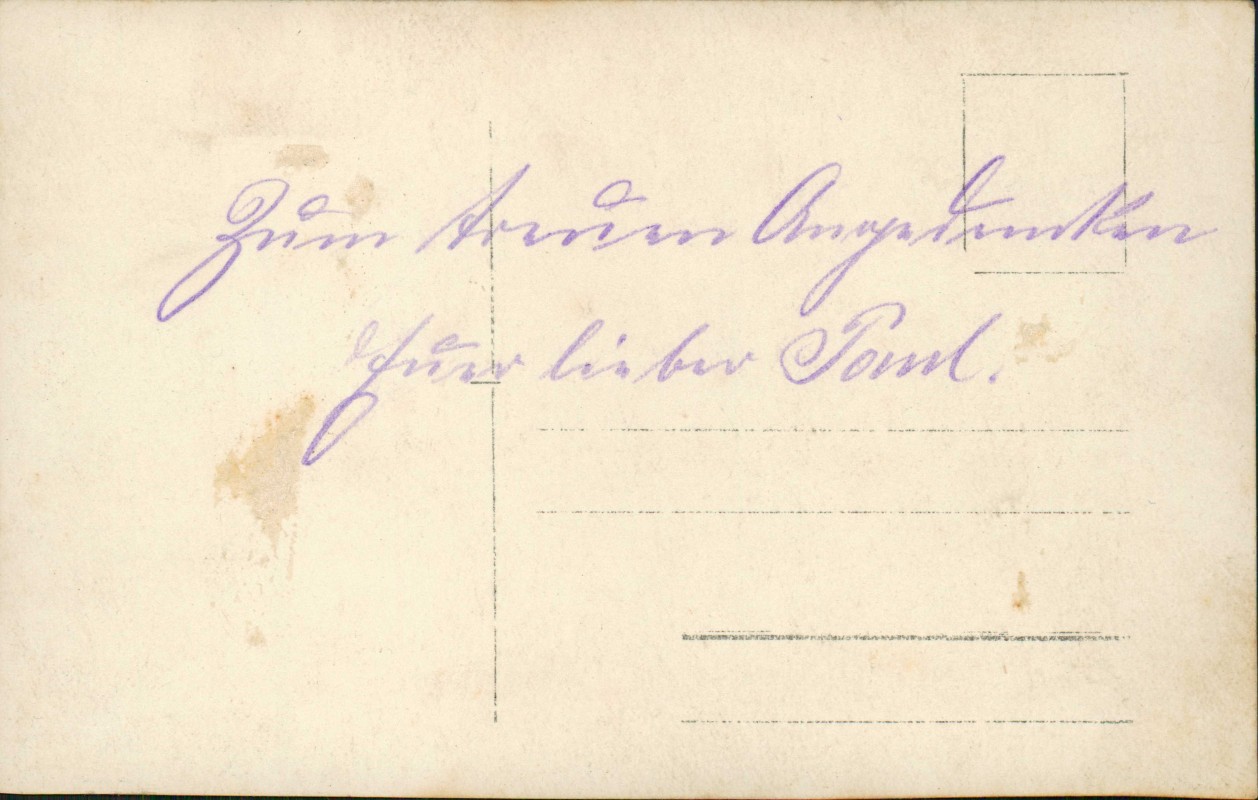 Zum treuen Angedenken
Euer lieber Paul.